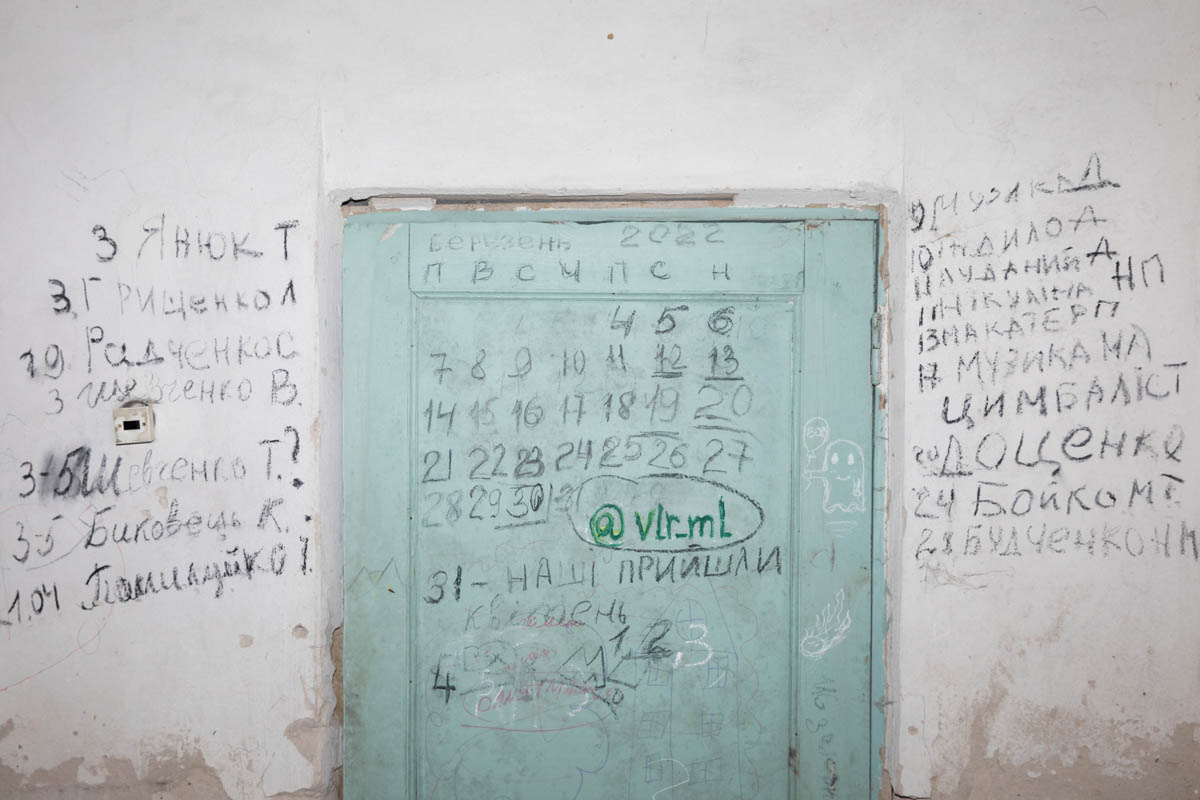 3 Янюк Т
3. Грищенко Л
19 Радченко С
3 Шевченко В.
3-5 Шевченко Т.?
3-5 Биковець К.
1.04
березень 2022
П В С Ч П С Н
4 5 6
7 8 9 10 11 12 13
14 15 16 17 18 19 20
21 22 23 24 25 26 27
28 29 30 31
@vlr_ml
31 - НАШІ ПРИЙШЛИ
квітень
1. 2 3
4
9 МУЗИКА Д
10 ЖДИЛО А
11 АУДАНИЙ А
11 НП
13 МАКАТЕР П
17 МУЗИКА МЛ
ЦИМБАЛІСТ
20 ДОЦЕНКО
24 БОЙКО МТ
28 БУДЧЕНКО НМ